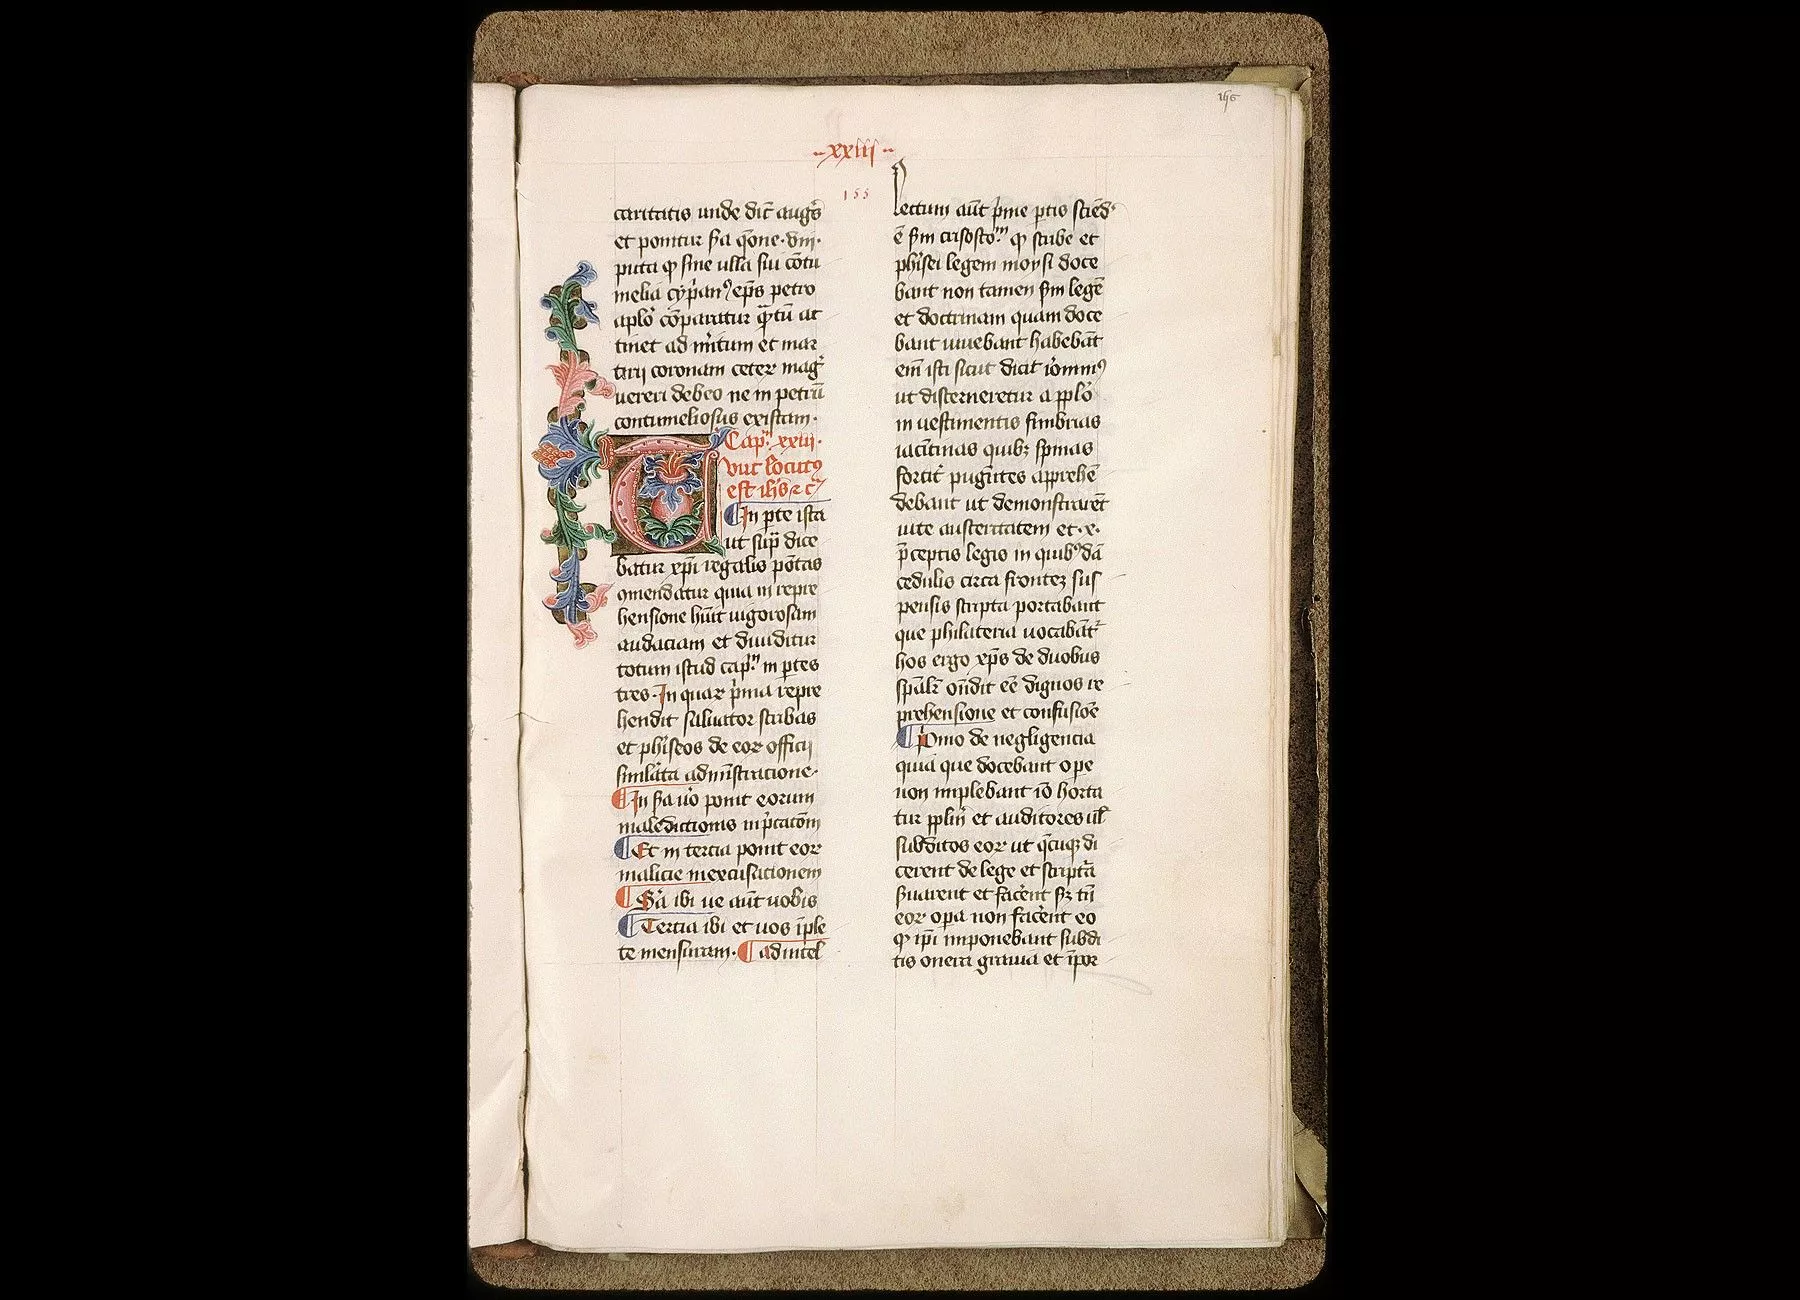 156
·xxiii·
155
caritatis unde dic̄ augꝰ
et ponitur ẜa q̄one · viii ·
puta ꝙ sine ulla sui cōtu
melia cyp̄anꝰ ep̄s petro
ap̄lo cōparatur q̄tū at
tinet ad m̄itum et mar
tirij coronam ceteꝝ maḡ
vereri debeo ne in petrū
contumeliosus existam ·
Cap̄m xxiii ·
Tunc locutꝰ
est ih̄s ⁊ c̄
In p̄te ista
ut sup̄ dice
batur xp̄i regalis p̄otas
ꝯmendatur quia in repre
hensione h̄uit uigorosam
audaciam et diuiditur
totum istud cap̄m in ptes
tres · In quaꝝ p̄ma repre
hendit saluator scribas
et ph̄iseos de eoꝝ officij
simĺata adm̄istratione ·
In ẜa uō ponit eorum
maledictionis inp̄catōm
Et in tertia ponit eoꝝ
malicie inexcusationem
Sā ibi ue aūt uobis
Tertia ibi et uos īple
te mensuram · ad intel
lectum aūt p̄me ꝑtis sciēd
ē ẜm crisosto.m ꝙ scribe et
ph̄isei legem moysi doce
bant non tamen ẜm legē
et doctrinam quam doce
bant uiuebant habebāt
em̄ isti sicut dicit iōnimꝰ
ut discerneretur a pp̄lo
in uestimentis fimbrias
iacītinas quibꝫ spinas
fortit̄ pugītes apprehē
debant ut demonstrarēt
uite austeritatem et · x ·
p̄ceptis legis in quibꝰdā
cedulis circa frontes sus
pensis scripta portabant
que philateria uocabāt̄
hos ergo xp̄s de duobus
sp̄alꝝ on̄dit eē dignos re
prehensione et confusiōe
Pmo de negligencia
quia que docebant ope
non implebant iō horta
tur pp̄lm et auditores uĺ
subditos eoꝝ ut q̄cūqꝫ di
cerent de lege et scriptā
ẜuarent et facēnt sꝫ tn̄
eoꝝ opa non facēnt eo
ꝙ ip̄i imponebant subdi
tis onera grauia et īpor